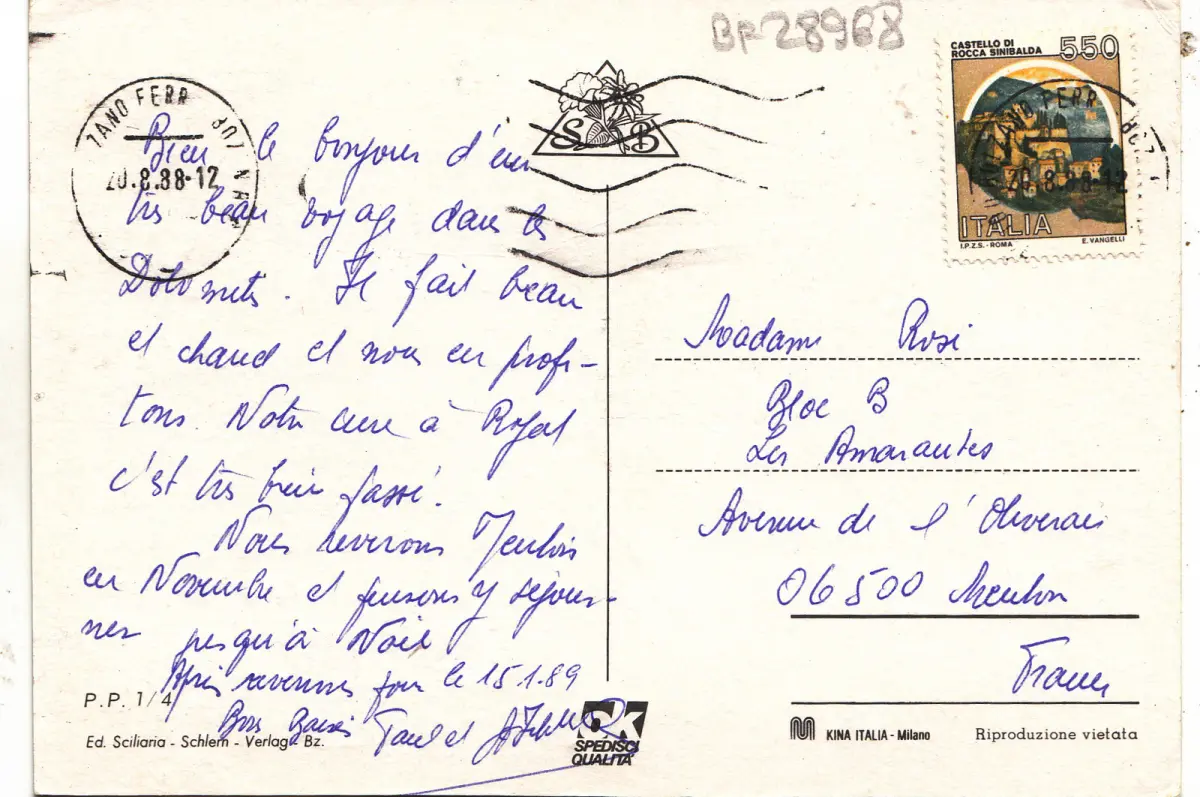 BF 28968
CASTELLO DI
ROCCA SINIBALDA
550
ITALIA
I.P.Z.S. - ROMA
E. VANGELLI
ZANO FERR
20.8.88-12
20.8.88-12
S B
Bien le bonjour d'un
très beau voyage dans les
Dolomites. Il fait beau
et chaud et nous en profi-
tons. Notre cure à Royat
c'est très bien passé.
Nous reverons Menton
en Novembre et pensons y séjour-
ner jusqu'à Noël
Après revenons pour le 15.1.89
Bons Baisers Paul et
Madame Rosi
Bloc B
Les Amarantes
Avenue de l'Oliverais
06500 Menton
France
P.P. 1/4
Ed. Sciliaria - Schlern - Verlag Bz.
OK
SPEDISCI
QUALITÀ
KINA ITALIA - Milano
Riproduzione vietata